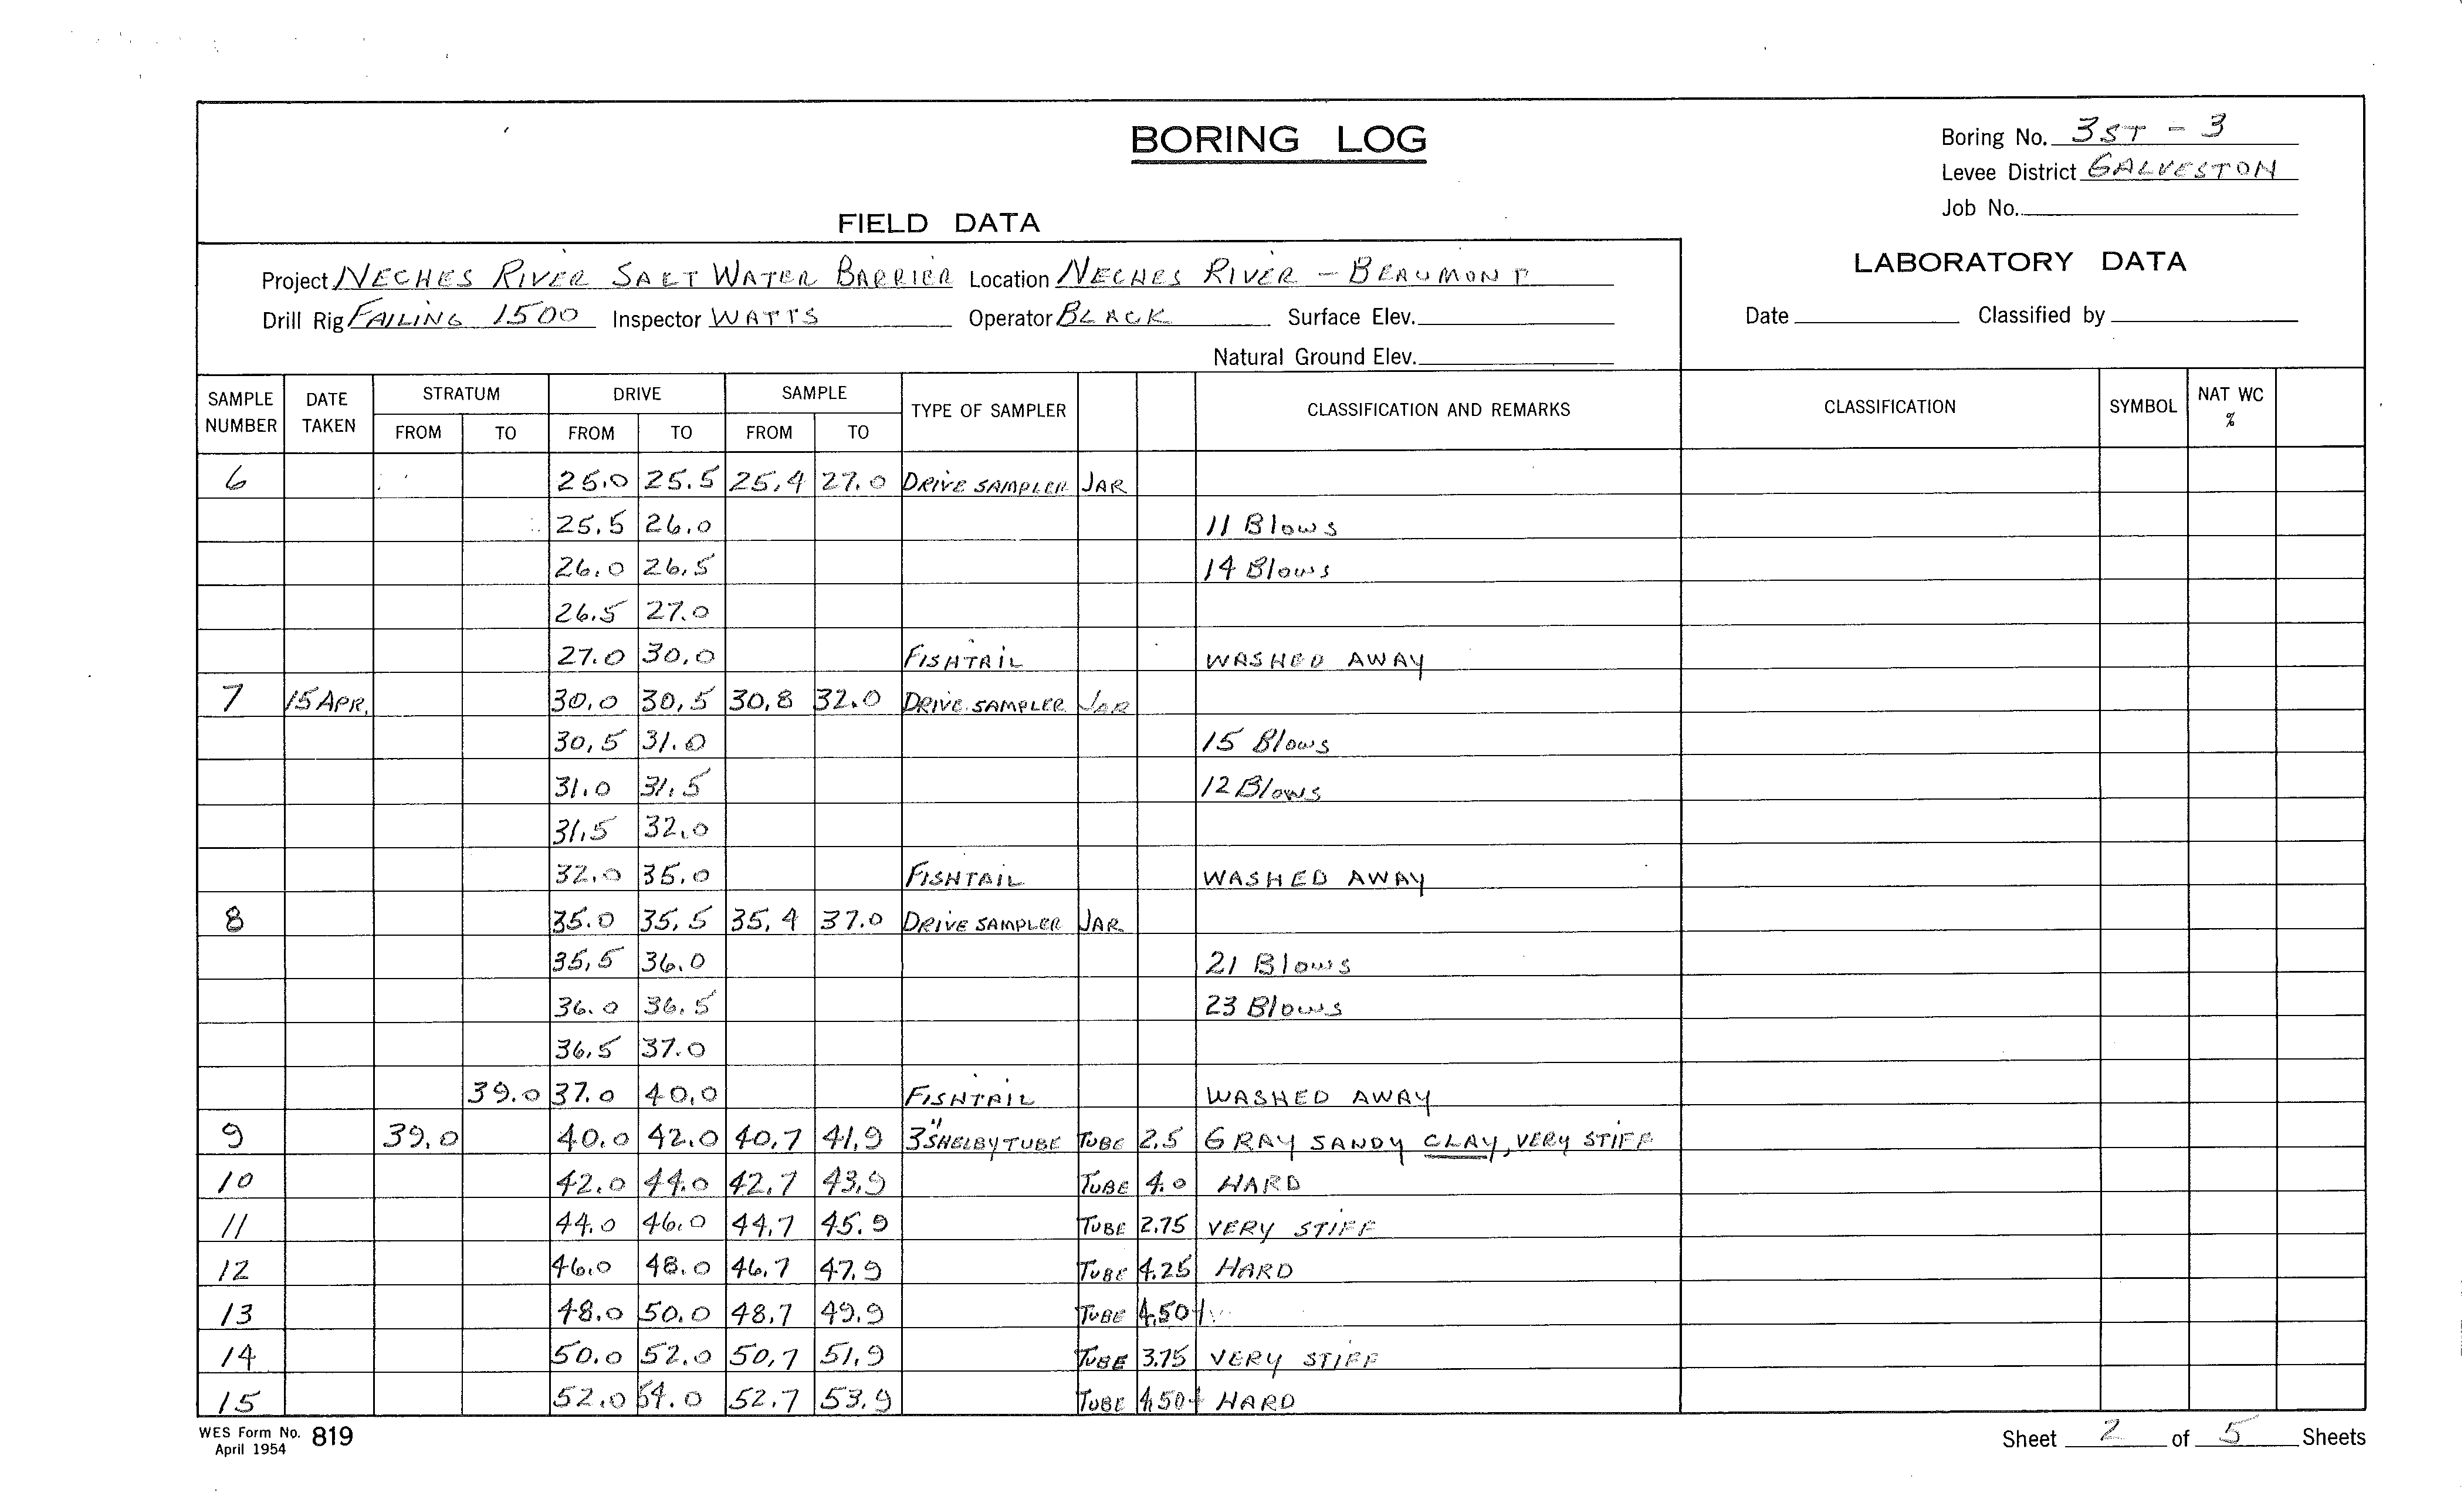 BORING LOG
Boring No. 3ST - 3
Levee District GALVESTON
Job No.
FIELD DATA
LABORATORY DATA
Project NECHES RIVER SALT WATER BARRIER Location NECHES RIVER - BEAUMONT
Drill Rig FAILING 1500 Inspector WATTS Operator BLACK Surface Elev.
Date Classified by
Natural Ground Elev.
SAMPLE NUMBER DATE TAKEN STRATUM FROM TO DRIVE FROM TO SAMPLE FROM TO TYPE OF SAMPLER CLASSIFICATION AND REMARKS CLASSIFICATION SYMBOL NAT WC %
6 25.0 25.5 25.4 27.0 DRIVE SAMPLER JAR
25.5 26.0 11 Blows
26.0 26.5 14 Blows
26.5 27.0
27.0 30.0 FISHTAIL WASHED AWAY
7 15 APR. 30.0 30.5 30.8 32.0 DRIVE SAMPLER JAR
30.5 31.0 15 Blows
31.0 31.5 12 Blows
31.5 32.0
32.0 35.0 FISHTAIL WASHED AWAY
8 35.0 35.5 35.4 37.0 DRIVE SAMPLER JAR
35.5 36.0 21 Blows
36.0 36.5 23 Blows
36.5 37.0
39.0 37.0 40.0 FISHTAIL WASHED AWAY
9 39.0 40.0 42.0 40.7 41.9 3" SHELBY TUBE TUBE 2.5 GRAY SANDY CLAY, VERY STIFF
10 42.0 44.0 42.7 43.9 TUBE 4.0 HARD
11 44.0 46.0 44.7 45.9 TUBE 2.75 VERY STIFF
12 46.0 48.0 46.7 47.9 TUBE 4.25 HARD
13 48.0 50.0 48.7 49.9 TUBE 4.50+
14 50.0 52.0 50.7 51.9 TUBE 3.75 VERY STIFF
15 52.0 54.0 52.7 53.9 TUBE 4.50+ HARD
WES Form No. 819
April 1954
Sheet 2 of 5 Sheets